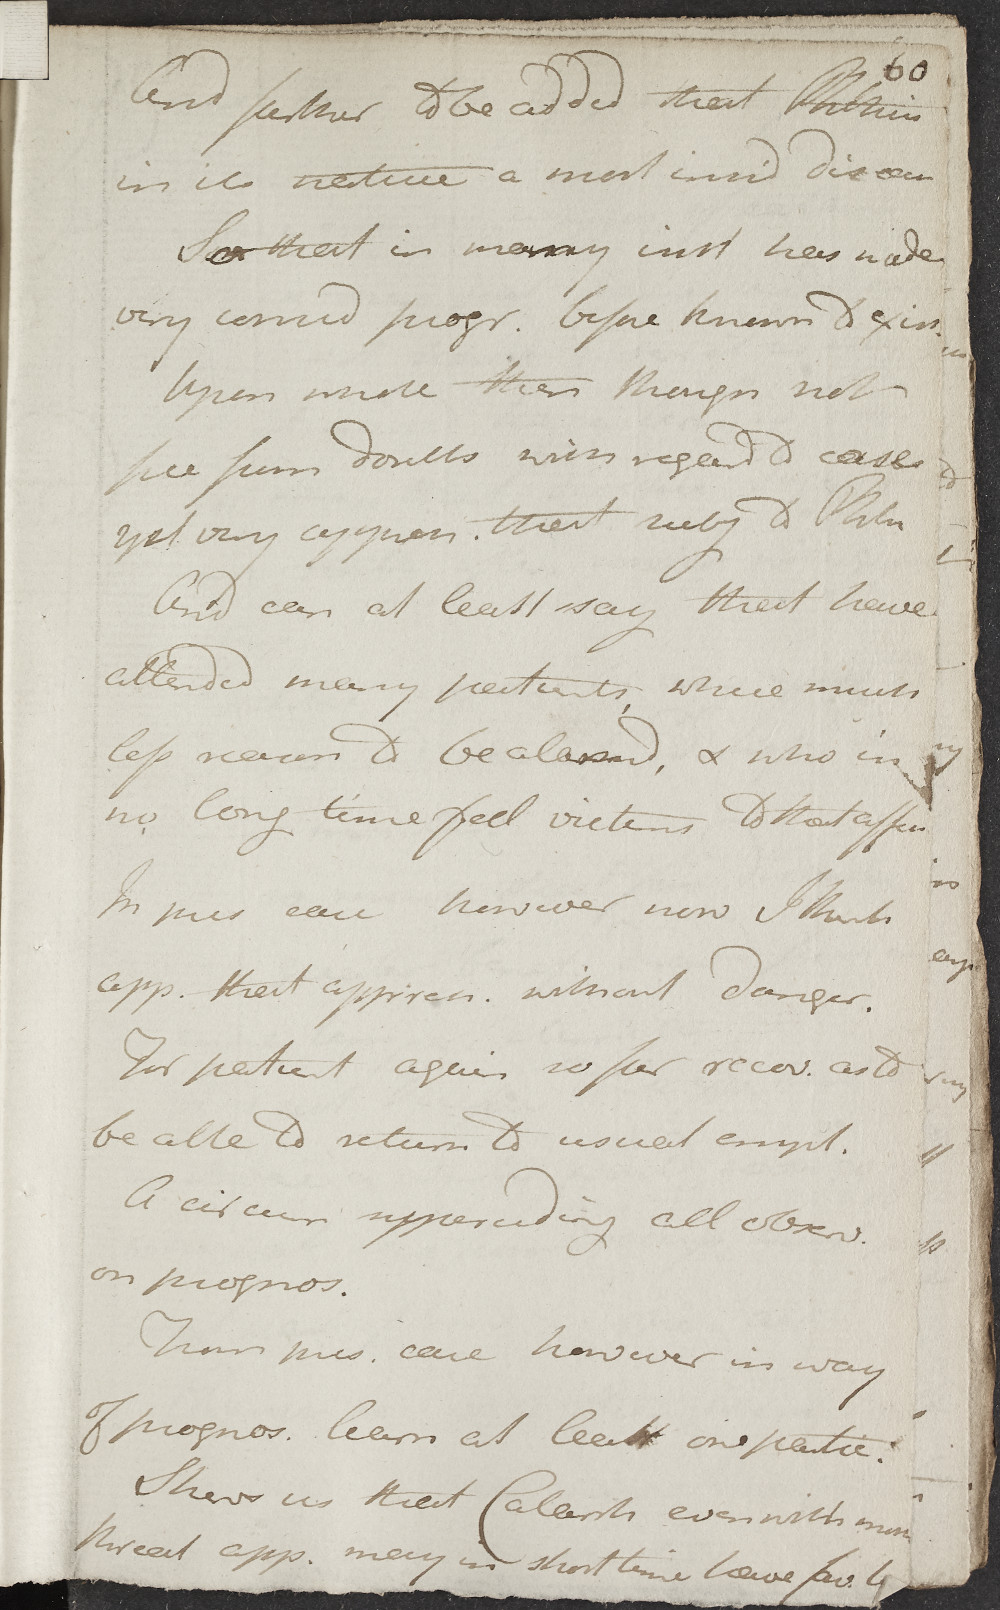 60
And further to be added that Phthisis
in its nature a most insid disease
So that in many inst has made
very consid progr. before known to exist.
Upon whole then though not
free from doubts with regard to case
yet very appren. that subj to Phth
And can at least say that have
attended many patients, where much
less reason to be alarmd, & who in
no long time fell victims to that affec
In pres case however now I think
app. that appren. without danger.
For patient again so far recov. as to
be able to return to usual empl.
A circum superceding all observ.
on prognos.
From pres. case however in way
of prognos. learn at least one partic.
Shews us that Catarrh even with most
threat app. may in short time have fav.